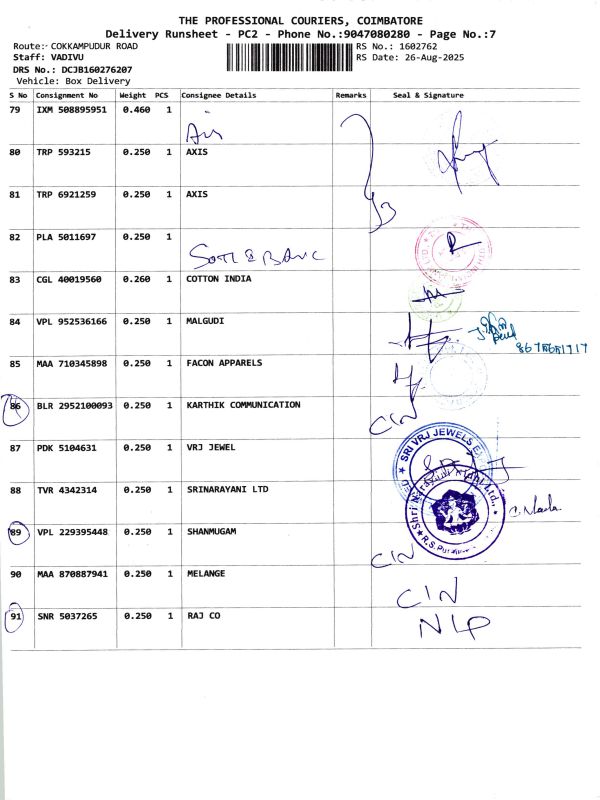 THE PROFESSIONAL COURIERS, COIMBATORE
Delivery Runsheet - PC2 - Phone No.:9047080280 - Page No.:7
Route:- COKKAMPUDUR ROAD RS No.: 1602762
Staff: VADIVU RS Date: 26-Aug-2025
DRS No.: DCJB160276207
Vehicle: Box Delivery
S No Consignment No Weight PCS Consignee Details Remarks Seal & Signature
79 IXM 508895951 0.460 1
80 TRP 593215 0.250 1 AXIS
81 TRP 6921259 0.250 1 AXIS
82 PLA 5011697 0.250 1
83 CGL 40019560 0.260 1 COTTON INDIA
84 VPL 952536166 0.250 1 MALGUDI
85 MAA 710345898 0.250 1 FACON APPARELS
86 BLR 2952100093 0.250 1 KARTHIK COMMUNICATION CIN
87 PDK 5104631 0.250 1 VRJ JEWEL
SRI VRJ JEWELS
88 TVR 4342314 0.250 1 SRINARAYANI LTD
89 VPL 229395448 0.250 1 SHANMUGAM CIN
90 MAA 870887941 0.250 1 MELANGE CIN
91 SNR 5037265 0.250 1 RAJ CO NLP